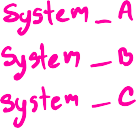 System _ A
System _ B
System _ C